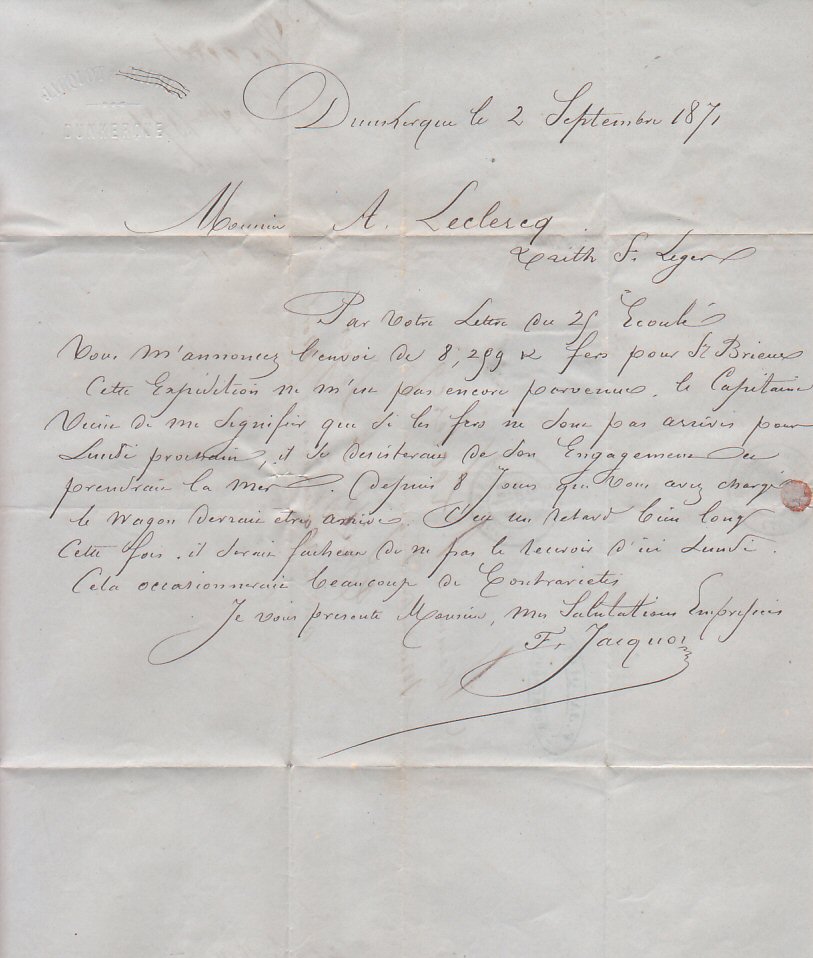 DUNKERQUE
Dunkerque le 2 Septembre 1871
Monsieur A. Leclercq
Traith St Leger
Par Votre Lettre du 25 Ecoulé
Vous m'annoncez l'envoi de 8,299 K fers pour St Brieuc
Cette Expédition ne m'est pas encore parvenue, le Capitaine
Vient de me signifier que si les fers ne sont pas arrivés pour
Lundi prochain, il se désisterait de son Engagement et
prendrait la mer. Depuis 8 Jours que vous avez chargé
le Wagon devrait etre arrivé. C'est un retard bien long
Cette fois. il serait facheux de ne pas le recevoir d'ici Lundi.
Cela occasionnerait beaucoup de Contrariétés
Je vous presente Monsieur, mes Salutations Empressées
Fr Jacquot